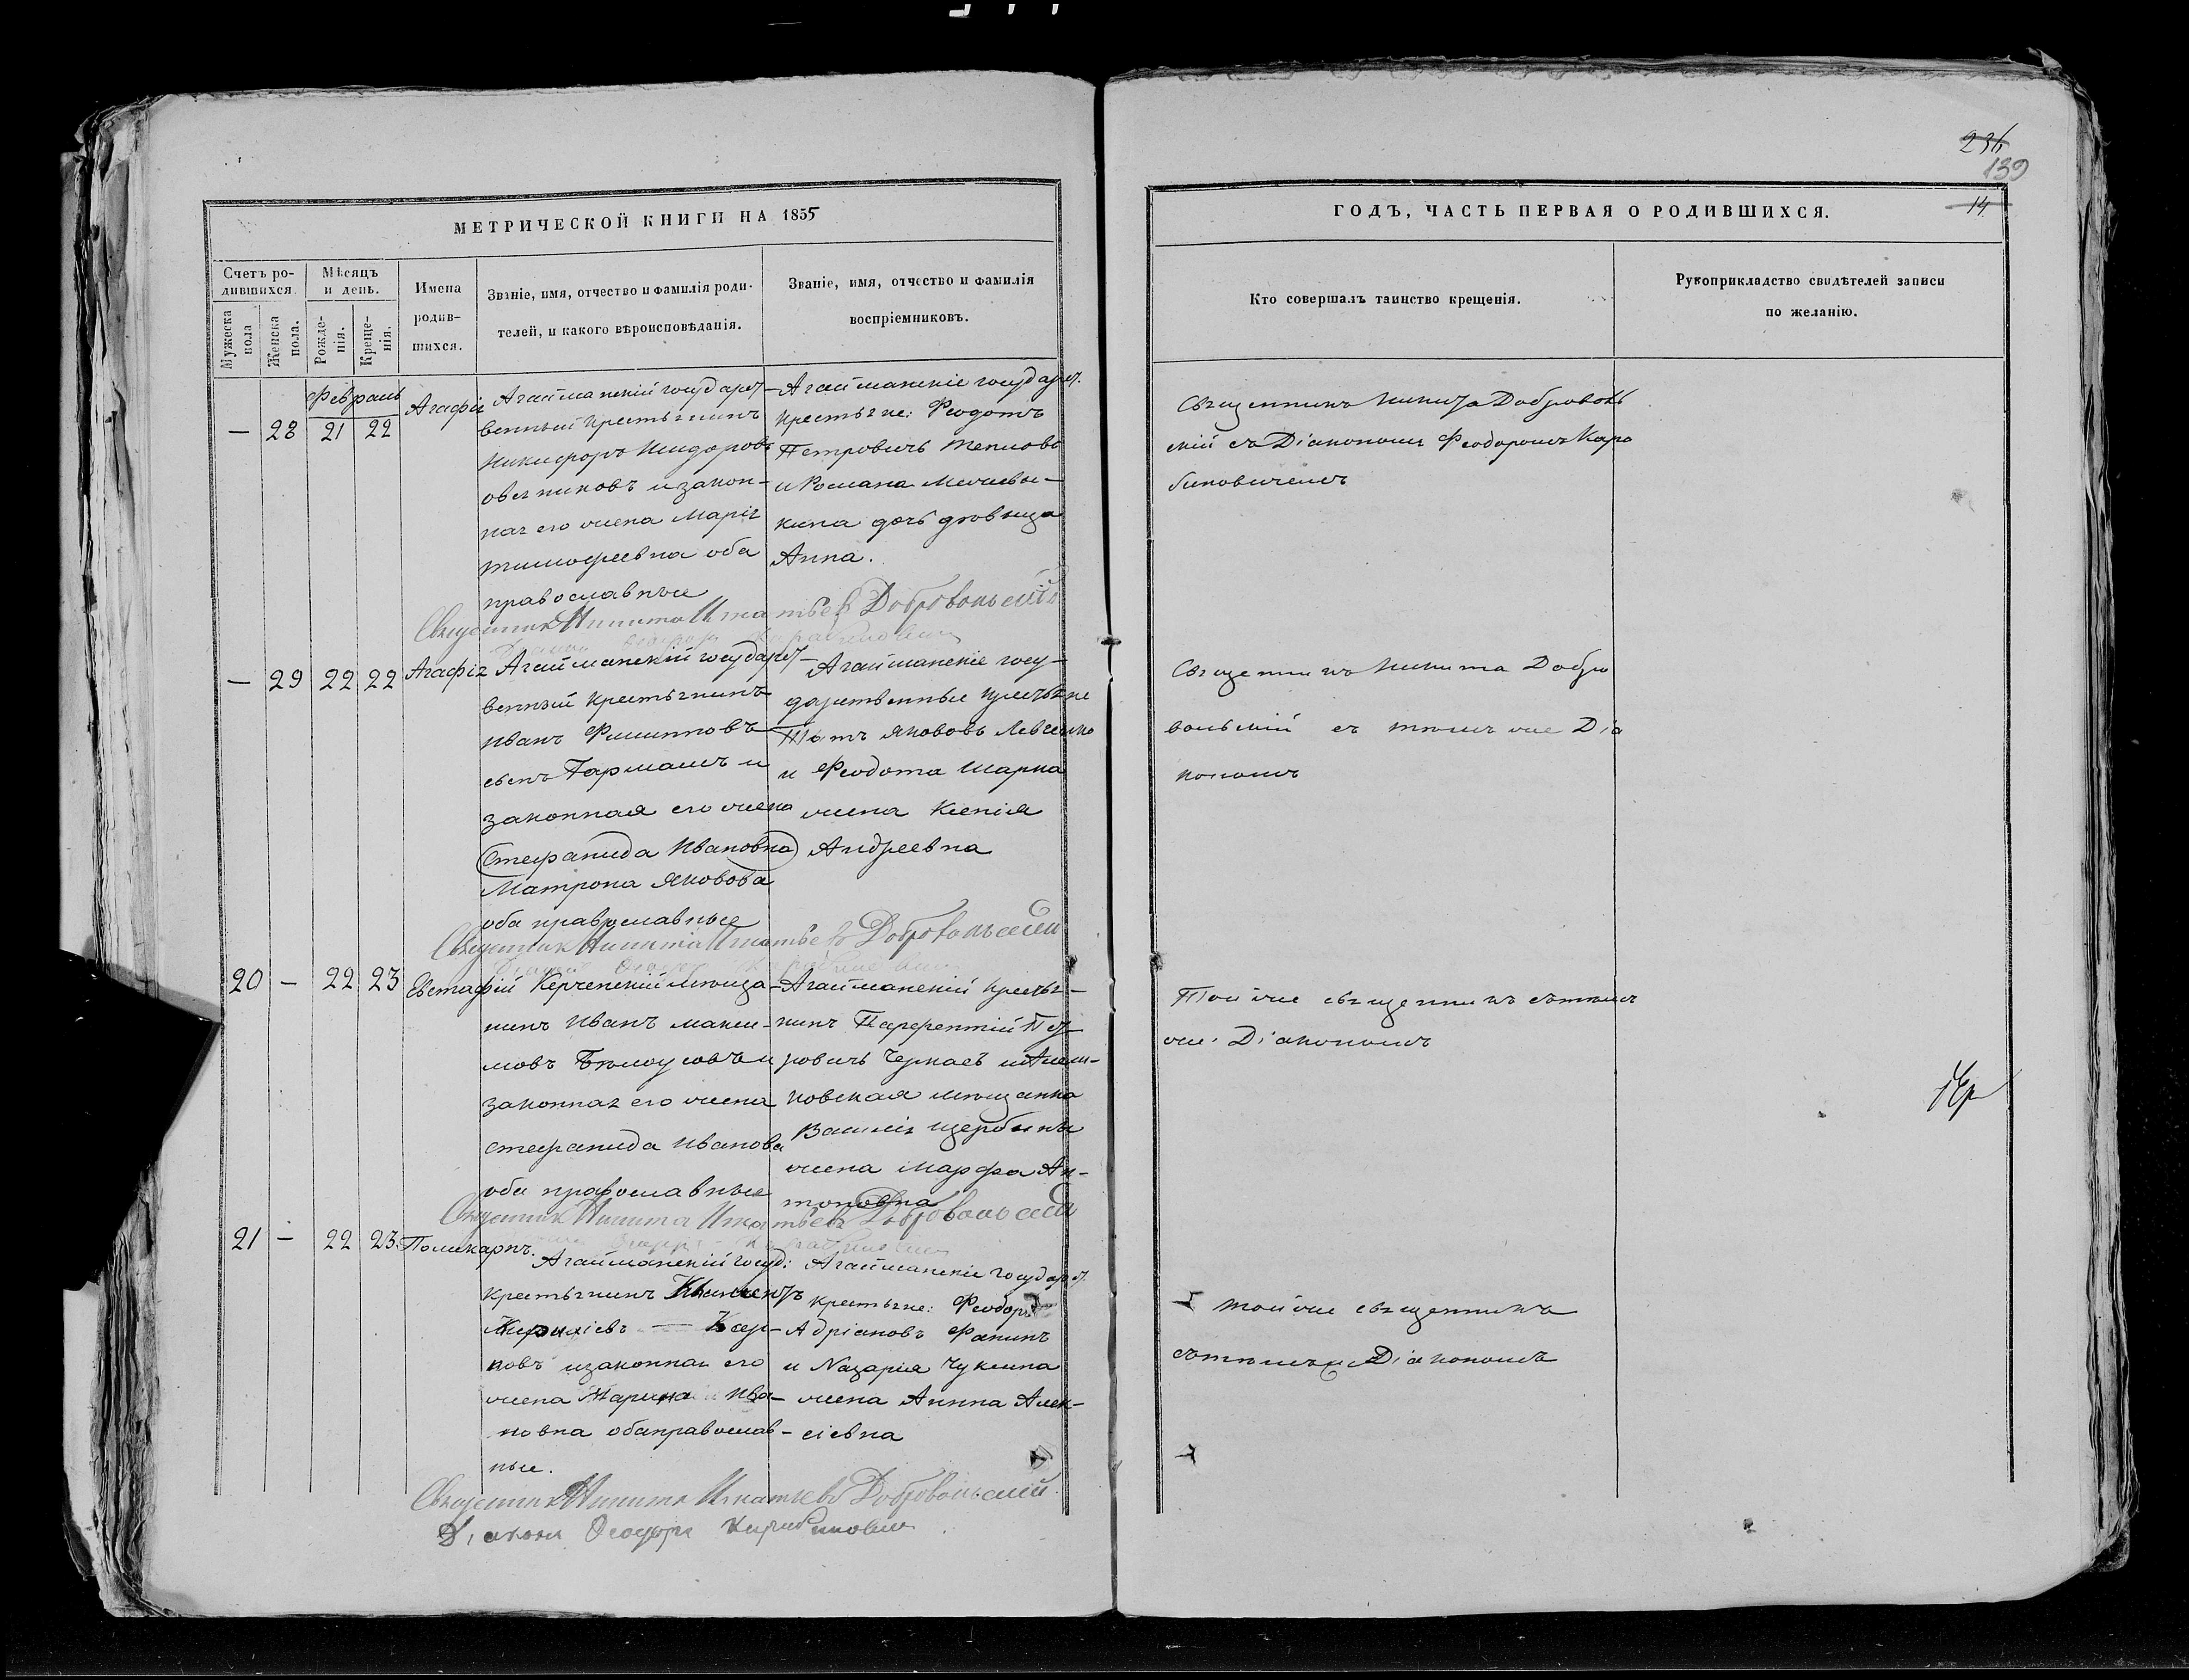 296
139
МЕТРИЧЕСКОЙ КНИГИ НА 1855
ГОДЪ, ЧАСТЬ ПЕРВАЯ О РОДИВШИХСЯ.
14
Счетъ ро-
дившихся
Мужеска пола
Женска пола.
Мѣсяцъ
и день.
Рожде-
нія.
Креще-
нія.
Имена
родив-
шихся.
Званіе, имя, отчество и фамилія роди-
телей, и какого вѣроисповѣданія.
Званіе, имя, отчество и фамилія
воспріемниковъ.
Кто совершалъ таинство крещенія.
Рукоприкладство свидѣтелей записи
по желанію.
Февраль
— 28 21 22
Агафія
Агайманскій государст-
венный крестьянинъ
Никифоръ
овъ и закон-
ная его жена Марія
Тимофеевна оба
православные
Агайманскіе государст.
крестьяне: Феодотъ
Петровичъ
и Романа
кина дочь дѣвица
Анна.
Священникъ Никита Доброволь
скій съ Діакономъ Феодоромъ Кара
биновичемъ
Священник Никита Игнатьев Добровольский
— 29 22 22
Агафія
Агайманскій государст-
венный крестьянинъ
Иванъ Филипповъ
сынъ и
законная его жена
(Стефанида Ивановна)
Матрона Яковова
оба православные
Агайманскіе госу-
дарственные крестьяне
Яковъ
и Феодота
жена Ксенія
Андреевна
Священникъ Никита Добро
вольскій съ тѣмъ же Діа
кономъ
Священник Никита Игнатьев Добровольский
20 — 22 23
Евстафій
Керченскій мѣща-
нинъ Иванъ Макси-
мовъ Бѣлоусовъ и
законная его жена
Стефанида Иванова
оба православные
Агайманскій крестья-
нинъ Парфентій Пет-
ровичъ и
мѣщанка
Василія Щербины
жена Марфа Ан-
тоновна
Той же священникъ съ тѣмъ
же Діакономъ
Священник Никита Игнатьев Добровольский
21 — 22 23
Поликарпъ.
Агайманскій госуд:
крестьянинъ
Кирилліевъ —
ковъ и законная его
жена Марина Ива-
новна оба православ-
ные.
Агайманскіе государст.
крестьяне: Феодоръ
Адріановъ Фанинъ
и Назарія
жена Анна Алек-
сіевна
той же священникъ
съ тѣмъ же Діакономъ
Священник Никита Игнатьевъ Добровольский
Діаконъ Феодоръ Карабинович